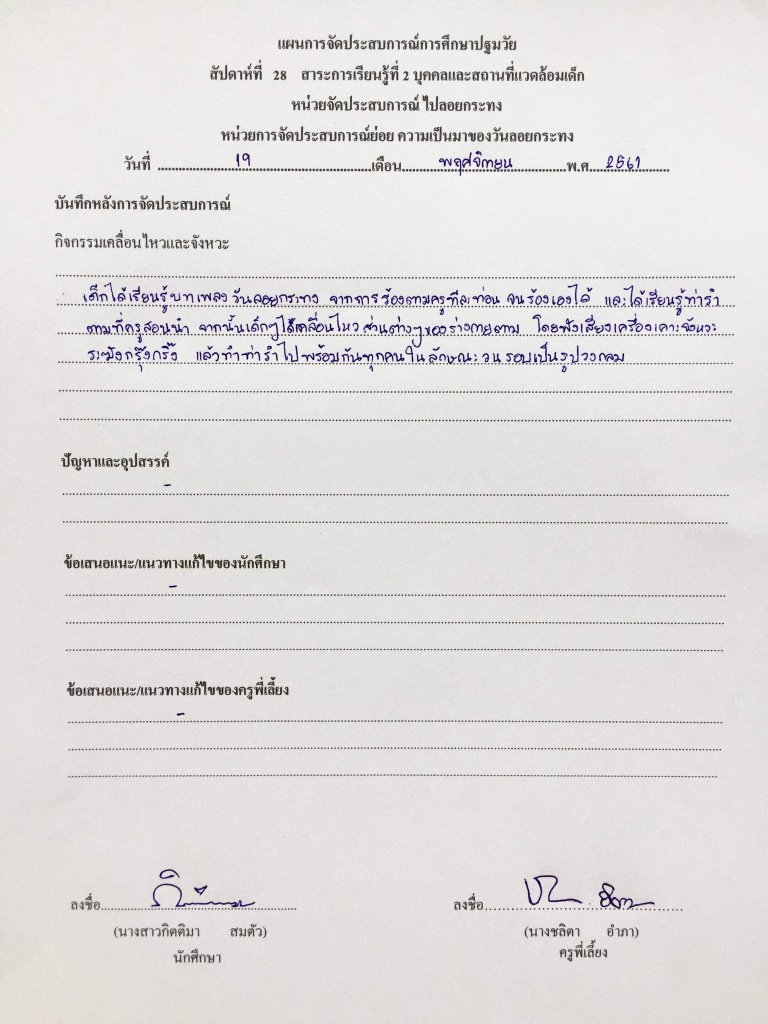 แผนการจัดประสบการณ์การศึกษาปฐมวัย
สัปดาห์ที่ 28 สาระการเรียนรู้ที่ 2 บุคคลและสถานที่แวดล้อมเด็ก
หน่วยจัดประสบการณ์ ไปลอยกระทง
หน่วยการจัดประสบการณ์ย่อย ความเป็นมาของวันลอยกระทง
วันที่ 19 เดือน พฤศจิกายน พ.ศ. 2561
บันทึกหลังการจัดประสบการณ์
กิจกรรมเคลื่อนไหวและจังหวะ
เด็กได้เรียนรู้บทเพลงวันลอยกระทง จากการร้องตามครูทีละท่อน จนร้องเองได้ และได้เรียนรู้ท่ารำ
ตามที่ครูสอนนำ จากนั้นเด็กๆได้เคลื่อนไหวส่วนต่างๆของร่างกายตาม โดยฟังเสียงเครื่องเคาะจังหวะ
ระฆังกรุ๊งกริ๊ง แล้วทำท่ารำไปพร้อมกันทุกคนในลักษณะวนรอบเป็นรูปวงกลม
ปัญหาและอุปสรรค์
-
ข้อเสนอแนะ/แนวทางแก้ไขของนักศึกษา
-
ข้อเสนอแนะ/แนวทางแก้ไขของครูพี่เลี้ยง
-
ลงชื่อ ลงชื่อ
(นางสาวกิตติมา สมตัว) (นางชลิตา อำภา)
นักศึกษา ครูพี่เลี้ยง